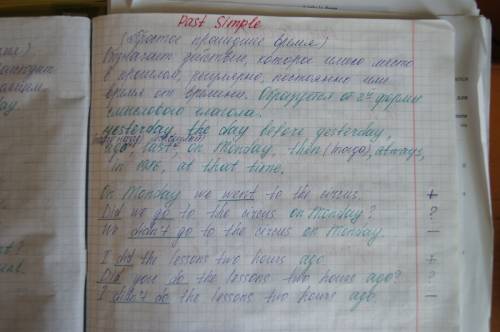 Past Simple
(Простое прошедшее время)
Обозначает действие, которое имело место
в прошлом, регулярно, постоянно или
время от времени. Образуется от 2ой формы
смыслового глагола.
yesterday, the day before yesterday,
ago, last, on Monday, then (тогда), always,
in 1986, at that time.
On Monday we went to the circus. +
Did we go to the circus on Monday? ?
We didn't go to the circus on Monday. –
I did the lessons two hours ago. +
Did you do the lessons two hours ago? ?
I didn't do the lessons two hours ago. –